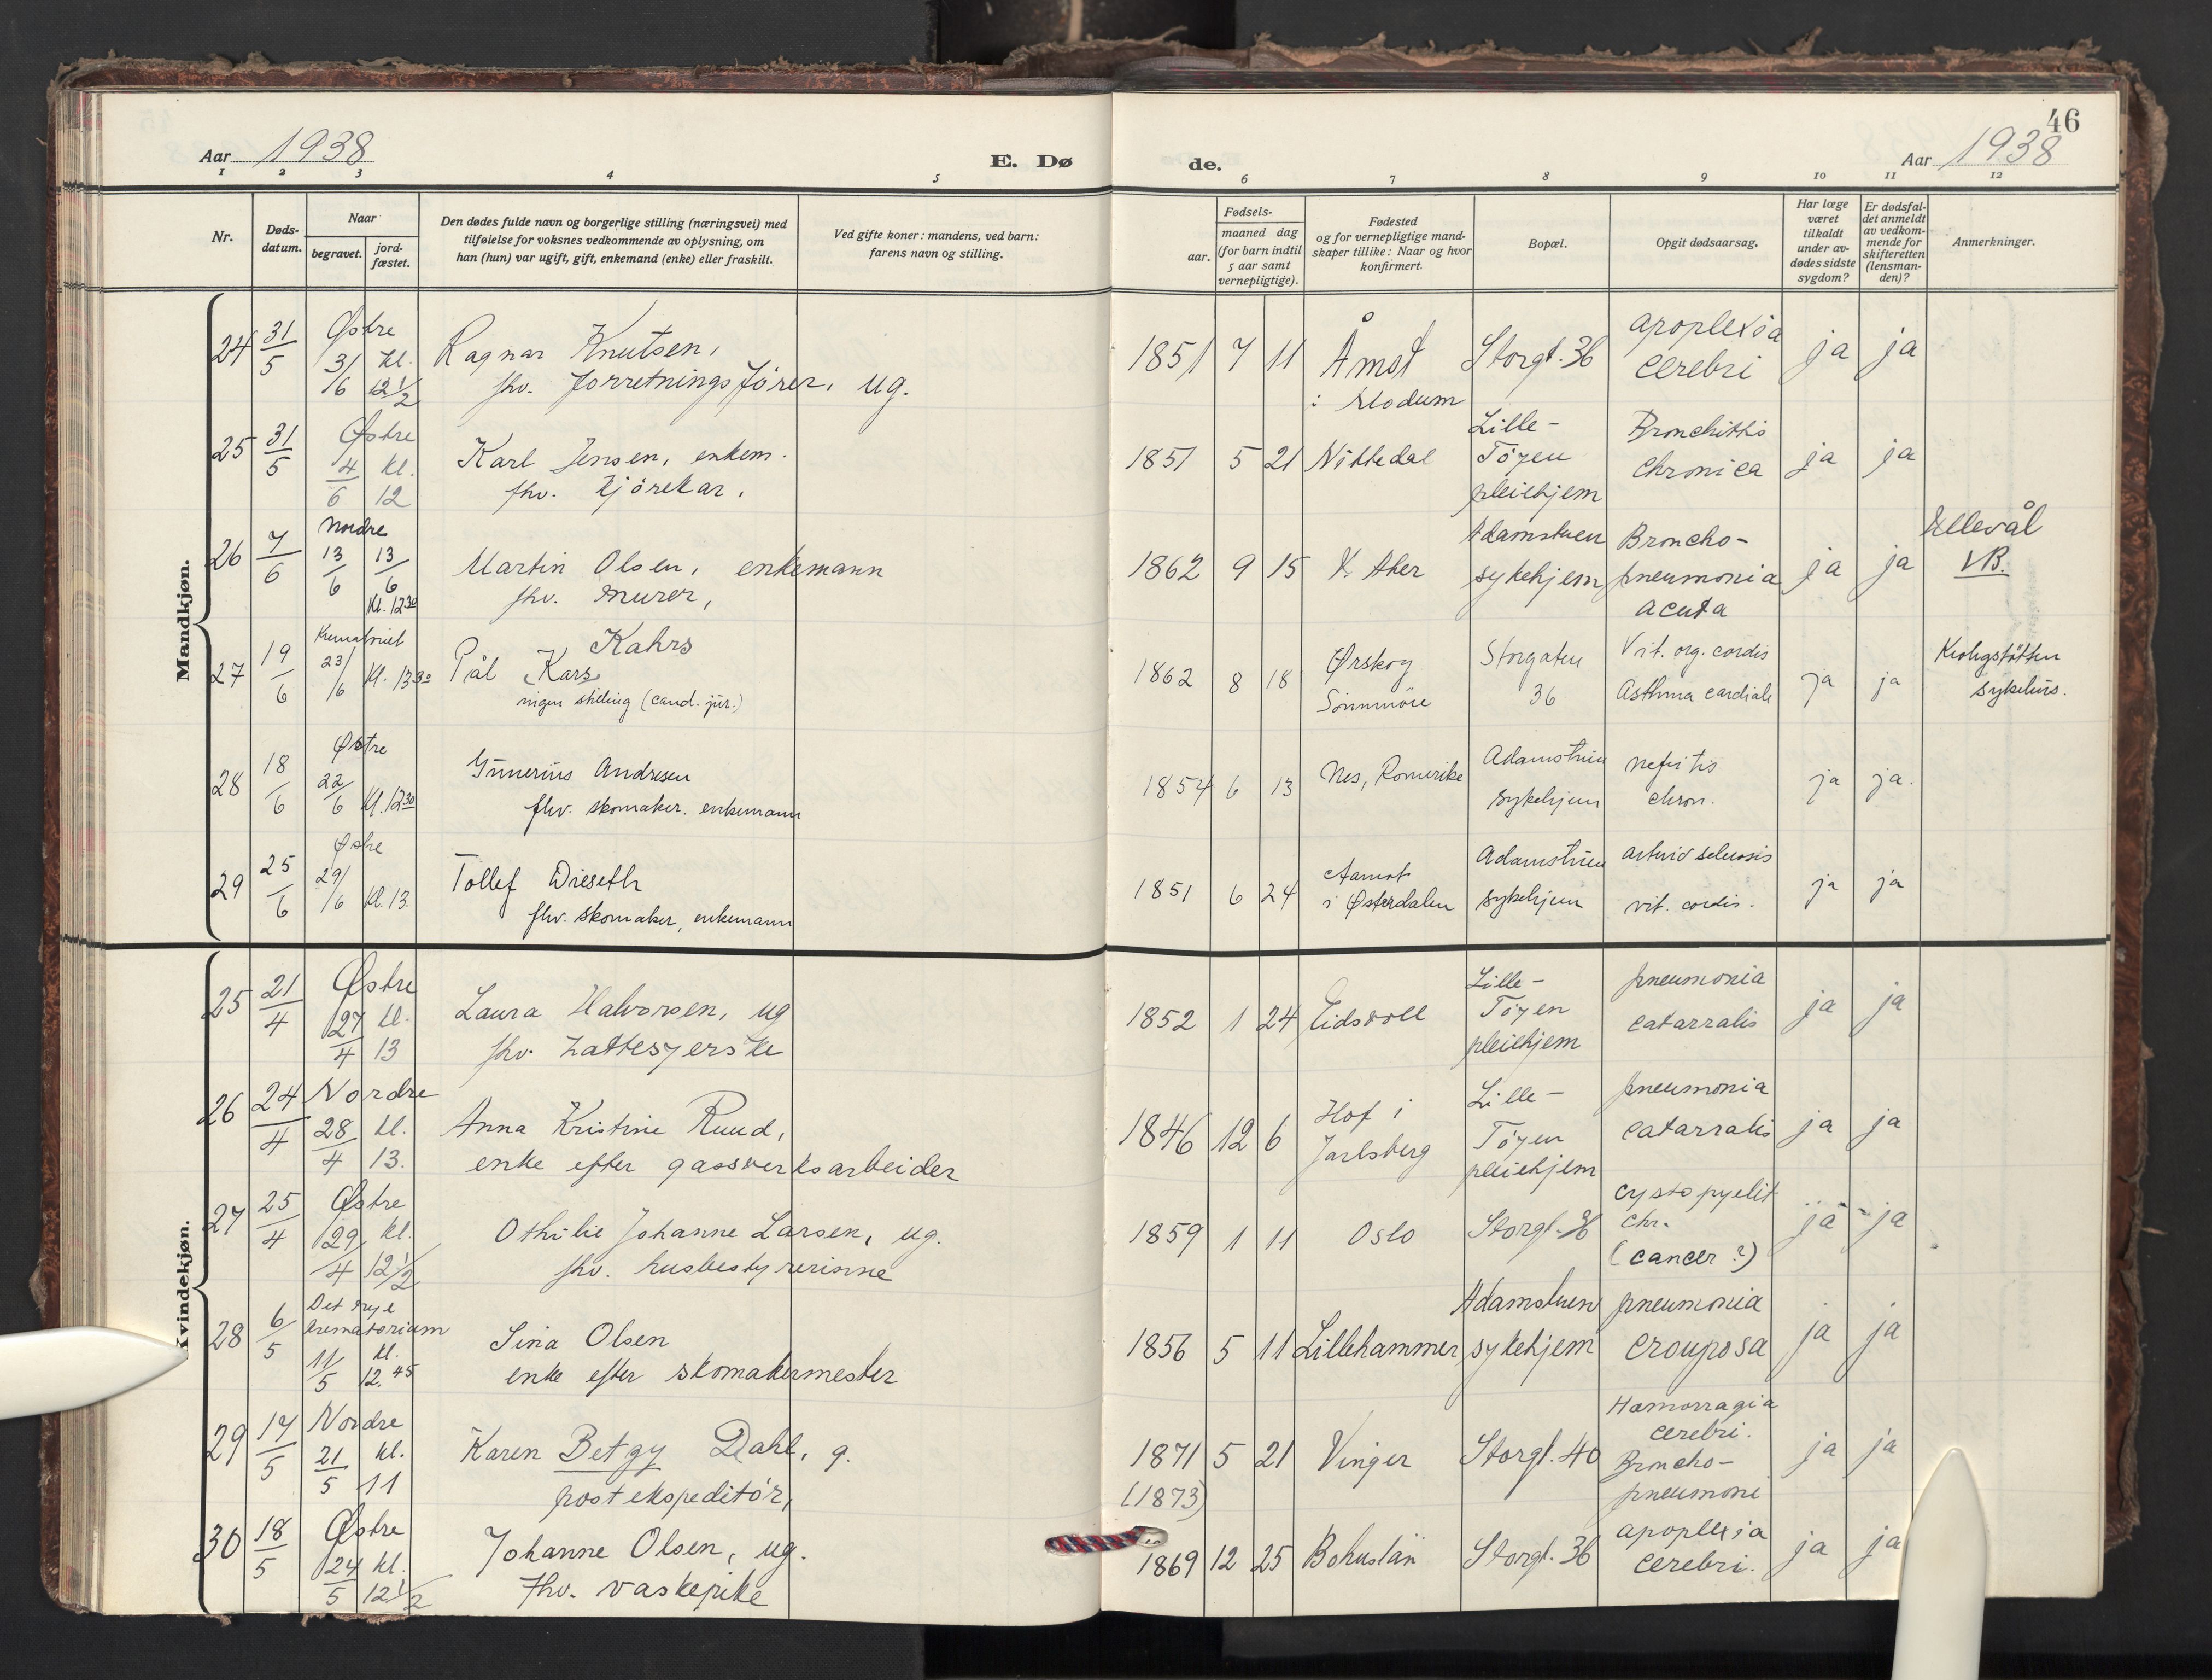 46
Aar 1938
E. Dø
de.
Aar 1938
1 2 3 4 5 6 7 8 9 10 11 12
Nr.
Døds-
datum.
Naar
begravet.
jord-
fæstet.
Den dødes fulde navn og borgerlige stilling (næringsvei) med
tilføielse for voksnes vedkommende av oplysning, om
han (hun) var ugift, gift, enkemand (enke) eller fraskilt.
Ved gifte koner: mandens, ved barn:
farens navn og stilling.
Fødsels-
aar.
maaned dag
(for barn indtil
5 aar samt
vernepligtige).
Fødested
og for vernepligtige mand-
skaper tillike: Naar og hvor
konfirmert.
Bopæl.
Opgit dødsaarsag.
Har læge
været
tilkaldt
under av-
dødes sidste
sygdom?
Er dødsfal-
det anmeldt
av vedkom-
mende for
skifteretten
(lensman-
den)?
Anmerkninger.
Mandkjøn.
24 31/5 Østre 3/6 kl. 12 1/2
Ragnar Knutsen,
fhv. forretningsfører, ug.
1851 7 11
Åmot
i Modum
Storgt. 36
apoplexia
cerebri
ja ja
25 31/5 Østre 4/6 kl. 12
Karl Jensen, enkem.
fhv. kjørekar,
1851 5 21 Nittedal
Lille-
Tøyen
pleiehjem
Bronchittis
chronica
ja ja
26 7/6 Nordre 13/6 13/6 Kl. 12 30
Martin Olsen, enkemann
fhv. murer,
1862 9 15 V. Aker
Adamstuen
sykehjem
Broncho-
pneumonia
acuta
ja ja
Ullevål
VB.
27 19/6 Krematoriet 23/6 Kl. 13 30
Kahrs
Pål Kars
ingen stilling (cand. jur.)
1862 8 18
Ørskog
Sunnmöre
Storgaten
36
Vit. org. cordis
Asthma cardiale
ja ja
Krohgstøtten
sykehus.
28 18/6 Østre 22/6 Kl. 12 30
Gunerius Andresen
fhv. skomaker. enkemann
1854 6 13 Nes, Romerike
Adamstuen
sykehjem
nefritis
chron.
ja ja.
29 25/6 Østre 29/6 Kl. 13.
Tollef Wieseth
fhv. skomaker, enkemann
1851 6 24
Aamot
i Østerdalen
Adamstuen
sykehjem
vit. cordis.
ja ja
Kvindekjøn.
25 21/4 Østre 27/4 kl. 13
Laura Halvorsen, ug
fhv. hattesyerske
1852 1 24 Eidsvoll
Lille-
Tøyen
pleiehjem
pneumonia
catarralis
ja ja
26 24/4 Nordre 28/4 kl. 13.
Anna Kristine Ruud,
enke efter gassverksarbeider
1846 12 6
Hof i
Jarlsberg
Lille-
Tøyen
pleiehjem
pneumonia
catarralis
ja ja
27 25/4 Østre 29/4 kl. 12 1/2
Othilie Johanne Larsen, ug.
fhv. husbestyrerinne
1859 1 11 Oslo Storgt. 36
cystopyelit
chr.
(cancer?)
ja ja
28 6/5 Det nye
krematorium
11/5 kl. 12.45
Lina Olsen
enke efter skomakermester
1856 5 11 Lillehammer
Adamstuen
sykehjem
pneumonia
crouposa
ja ja
29 17/5 Nordre 21/5 kl. 11
Karen Betzy Dahl, g.
postekspeditør,
1871 5 21 Vinger Storgt. 40
(1873)
Hæmorragia
cerebri.
Broncho-
pneumoni
ja ja
30 18/5 Østre 24/5 kl. 12 1/2
Johanne Olsen, ug.
fhv. vaskepike
1869 12 25 Bohuslän Storgt. 36
apoplexia
cerebri.
ja ja